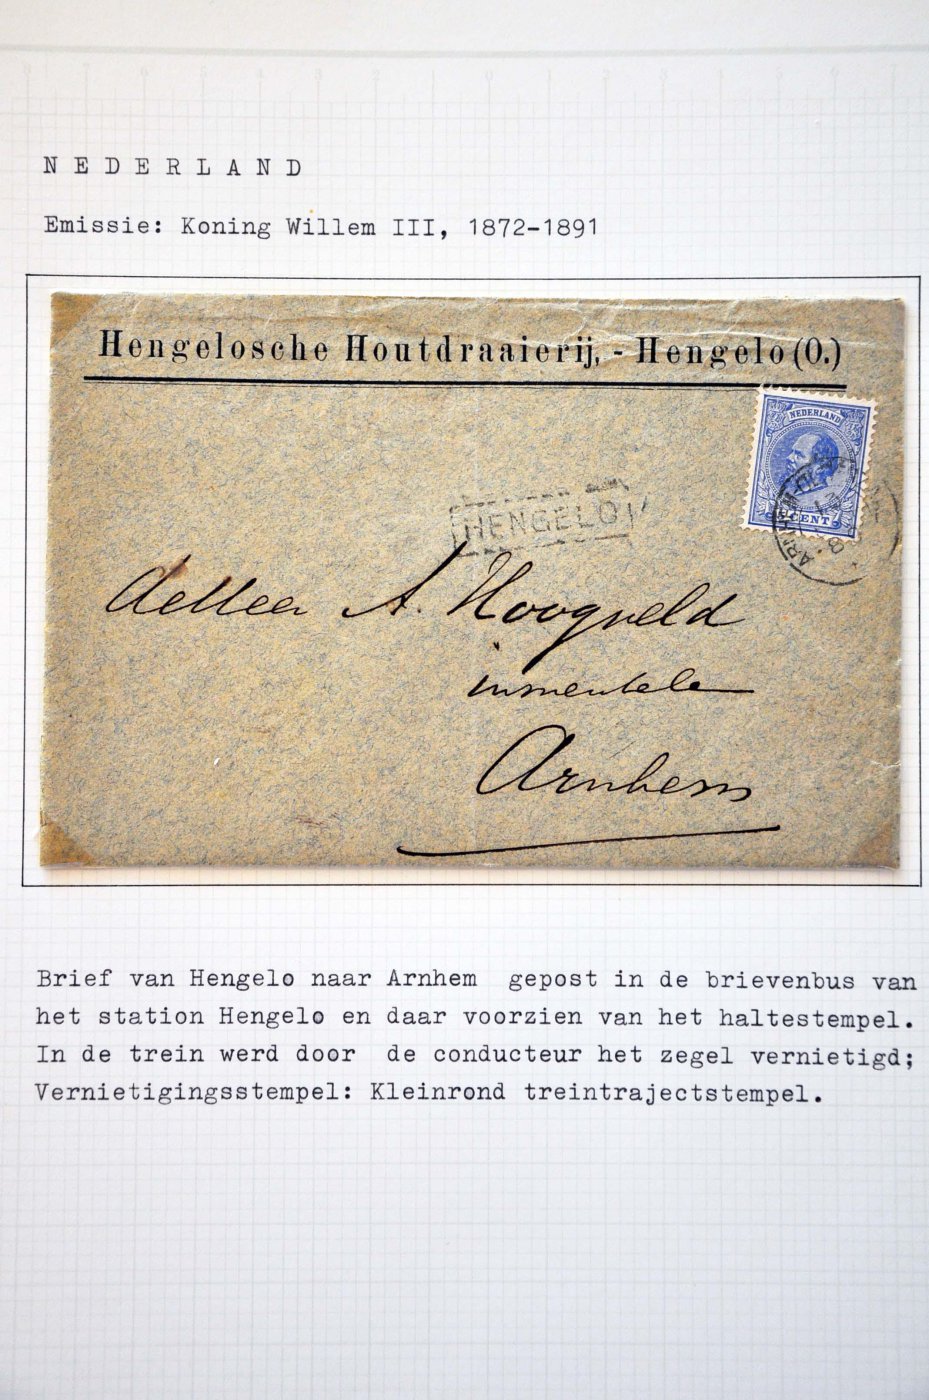 N E D E R L A N D
Emissie: Koning Willem III, 1872-1891
Hengelosche Houtdraaierij, - Hengelo (O.)
NEDERLAND
CENT
HENGELO
A. Hoogveld
Arnhem
Brief van Hengelo naar Arnhem gepost in de brievenbus van
het station Hengelo en daar voorzien van het haltestempel.
In de trein werd door de conducteur het zegel vernietigd;
Vernietigingsstempel: Kleinrond treintrajectstempel.